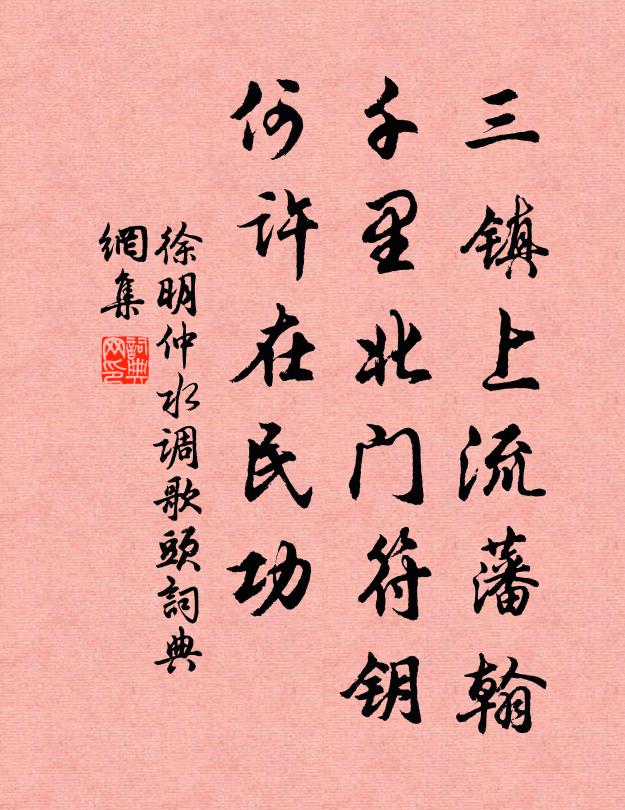 三镇上流藩翰
千里北门符钥
何许在民功
徐明仲水调歌头詞典
網集
詞典网印